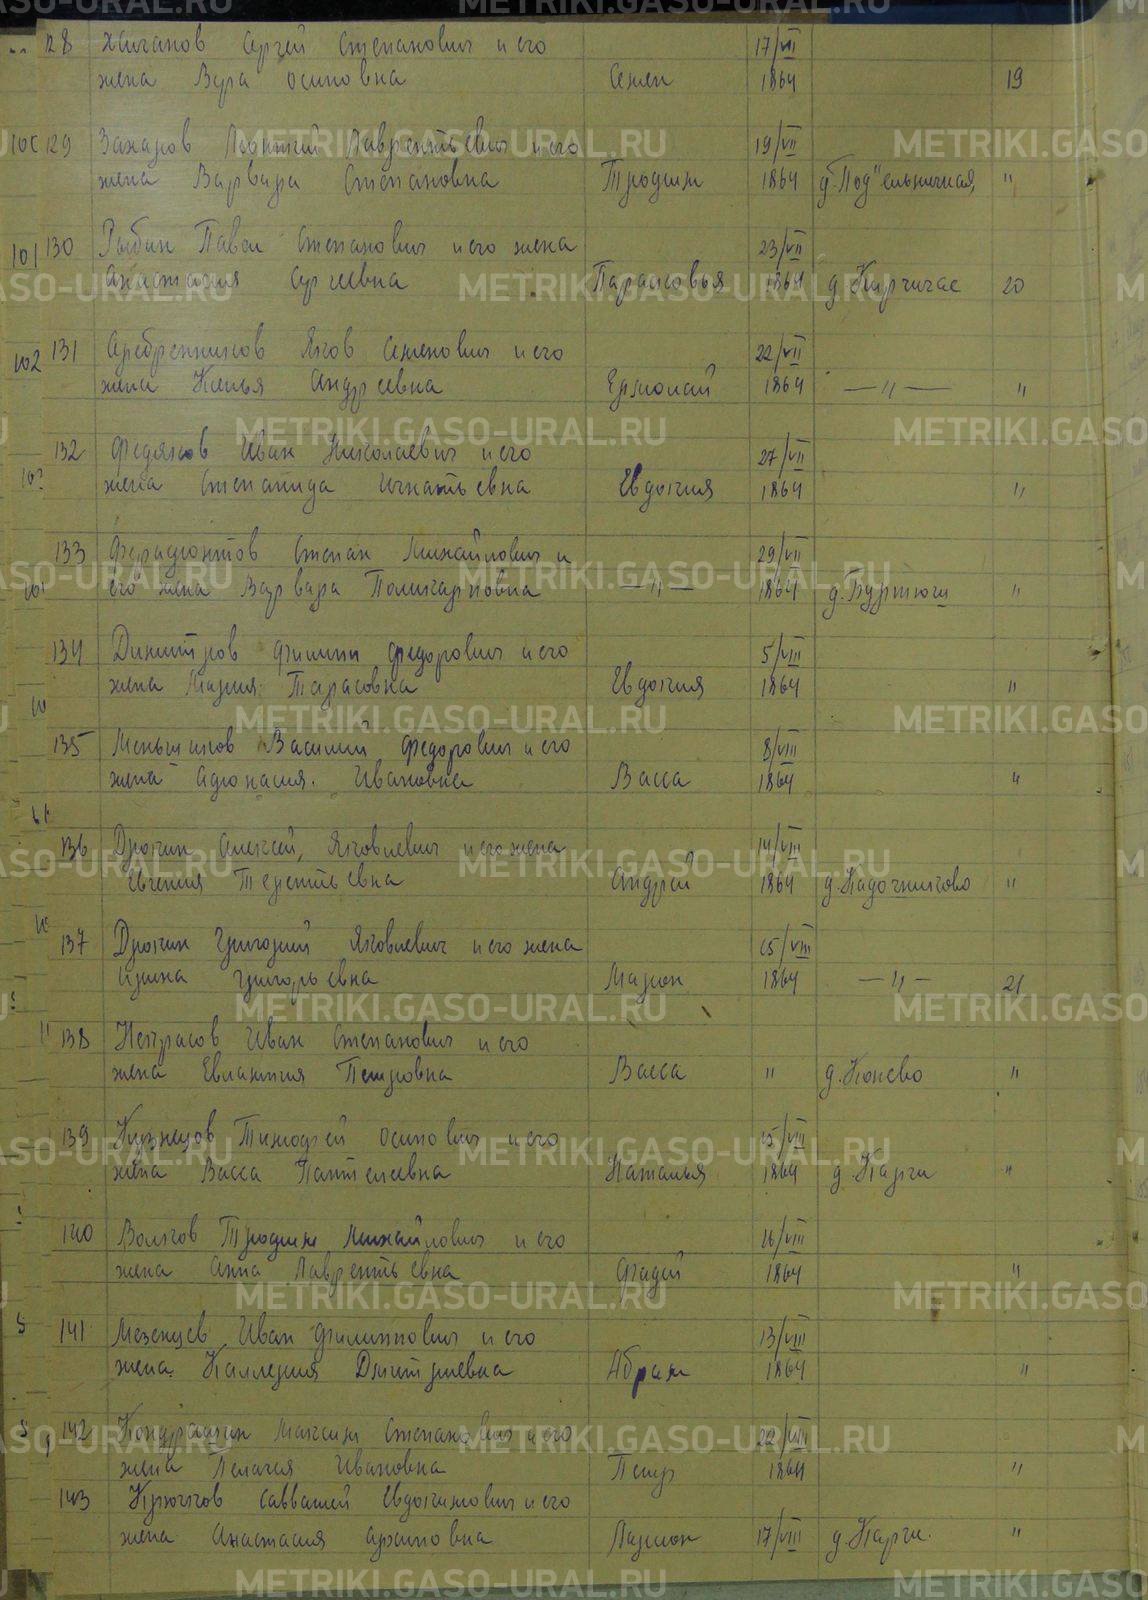 128 Жиганов Сергей Степанович и его 17/VII
жена Вера Осиповна Семен 1864 19
129 Захаров Леонтий Лаврентьевич и его 19/VII
жена Варвара Степановна Трофим 1864 д. Под"ельничная, "
101 130 Рыбин Павел Степанович и его жена 23/VII
Анастасия Сергеевна Парасковья 1864 д. Кирчигас 20
102 131 Серебренников Яков Семенович и его 22/VII
жена Ксенья Андреевна Ермолай 1864 —"— "
132 Федяков Иван Николаевич и его 27/VII
жена Степанида Игнатьевна Евдокия 1864 "
133 Ферафонтов Степан Михайлович и 29/VII
его жена Варвара Поликарповна —"— 1864 д. Буртюги "
134 Димитров Филипп Федорович и его 5/VIII
жена Мария Тарасовка Евдокия 1864 "
135 Меньшиков Василий Федорович и его 8/VIII
жена Афонасия Ивановна Васса 1864 "
136 Дрокин Алексей, Яковлевич и его жена 14/VIII
Евгения Терентьевна Андрей 1864 "
137 Дрокин Григорий Яковлевич и его жена 15/VIII
Ирина Григорьевна Марион 1864 —"— 21
138 Некрасов Иван Степанович и его
жена Евлампия Петровна Васса " д. Конево "
139 Кузнецов Тимофей Осипович и его 15/VIII
жена Васса Пантелеевна Наталья 1864 д. Карги "
140 Волков Трофим Михайлович и его 16/VIII
жена Анна Лаврентьевна Фадей 1864 "
141 Мезенцев Иван Филиппович и его 13/VIII
жена Каллерия Дмитриевна Абрам 1864 "
142 Кондрашин Максим Степанович и его 22/VIII
жена Пелагея Ивановна Петр 1864 "
143 Крючков Савватей Евдокимович и его
жена Анастасия Архиповна Ларион 17/VIII д. Карги. "
METRIKI.GASO-URAL.RU